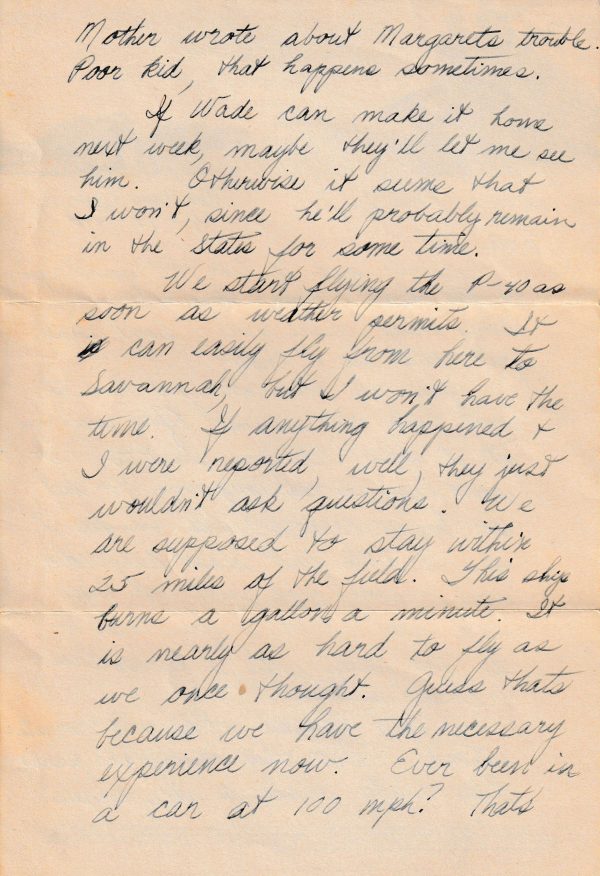 Mother wrote about Margarets trouble.
Poor kid, that happens sometimes.
If Wade can make it home
next week, maybe they'll let me see
him. Otherwise it seems that
I won't, since he'll probably remain
in the States for some time.
We start flying the P-40 as
soon as weather permits. It
can easily fly from here to
Savannah, but I won't have the
time. If anything happened &
I were reported, well, they just
wouldn't ask questions. We
are supposed to stay within
25 miles of the field. This ship
burns a gallon a minute. It
is nearly as hard to fly as
we once thought. Guess thats
because we have the necessary
experience now. Ever been in
a car at 100 mph? Thats